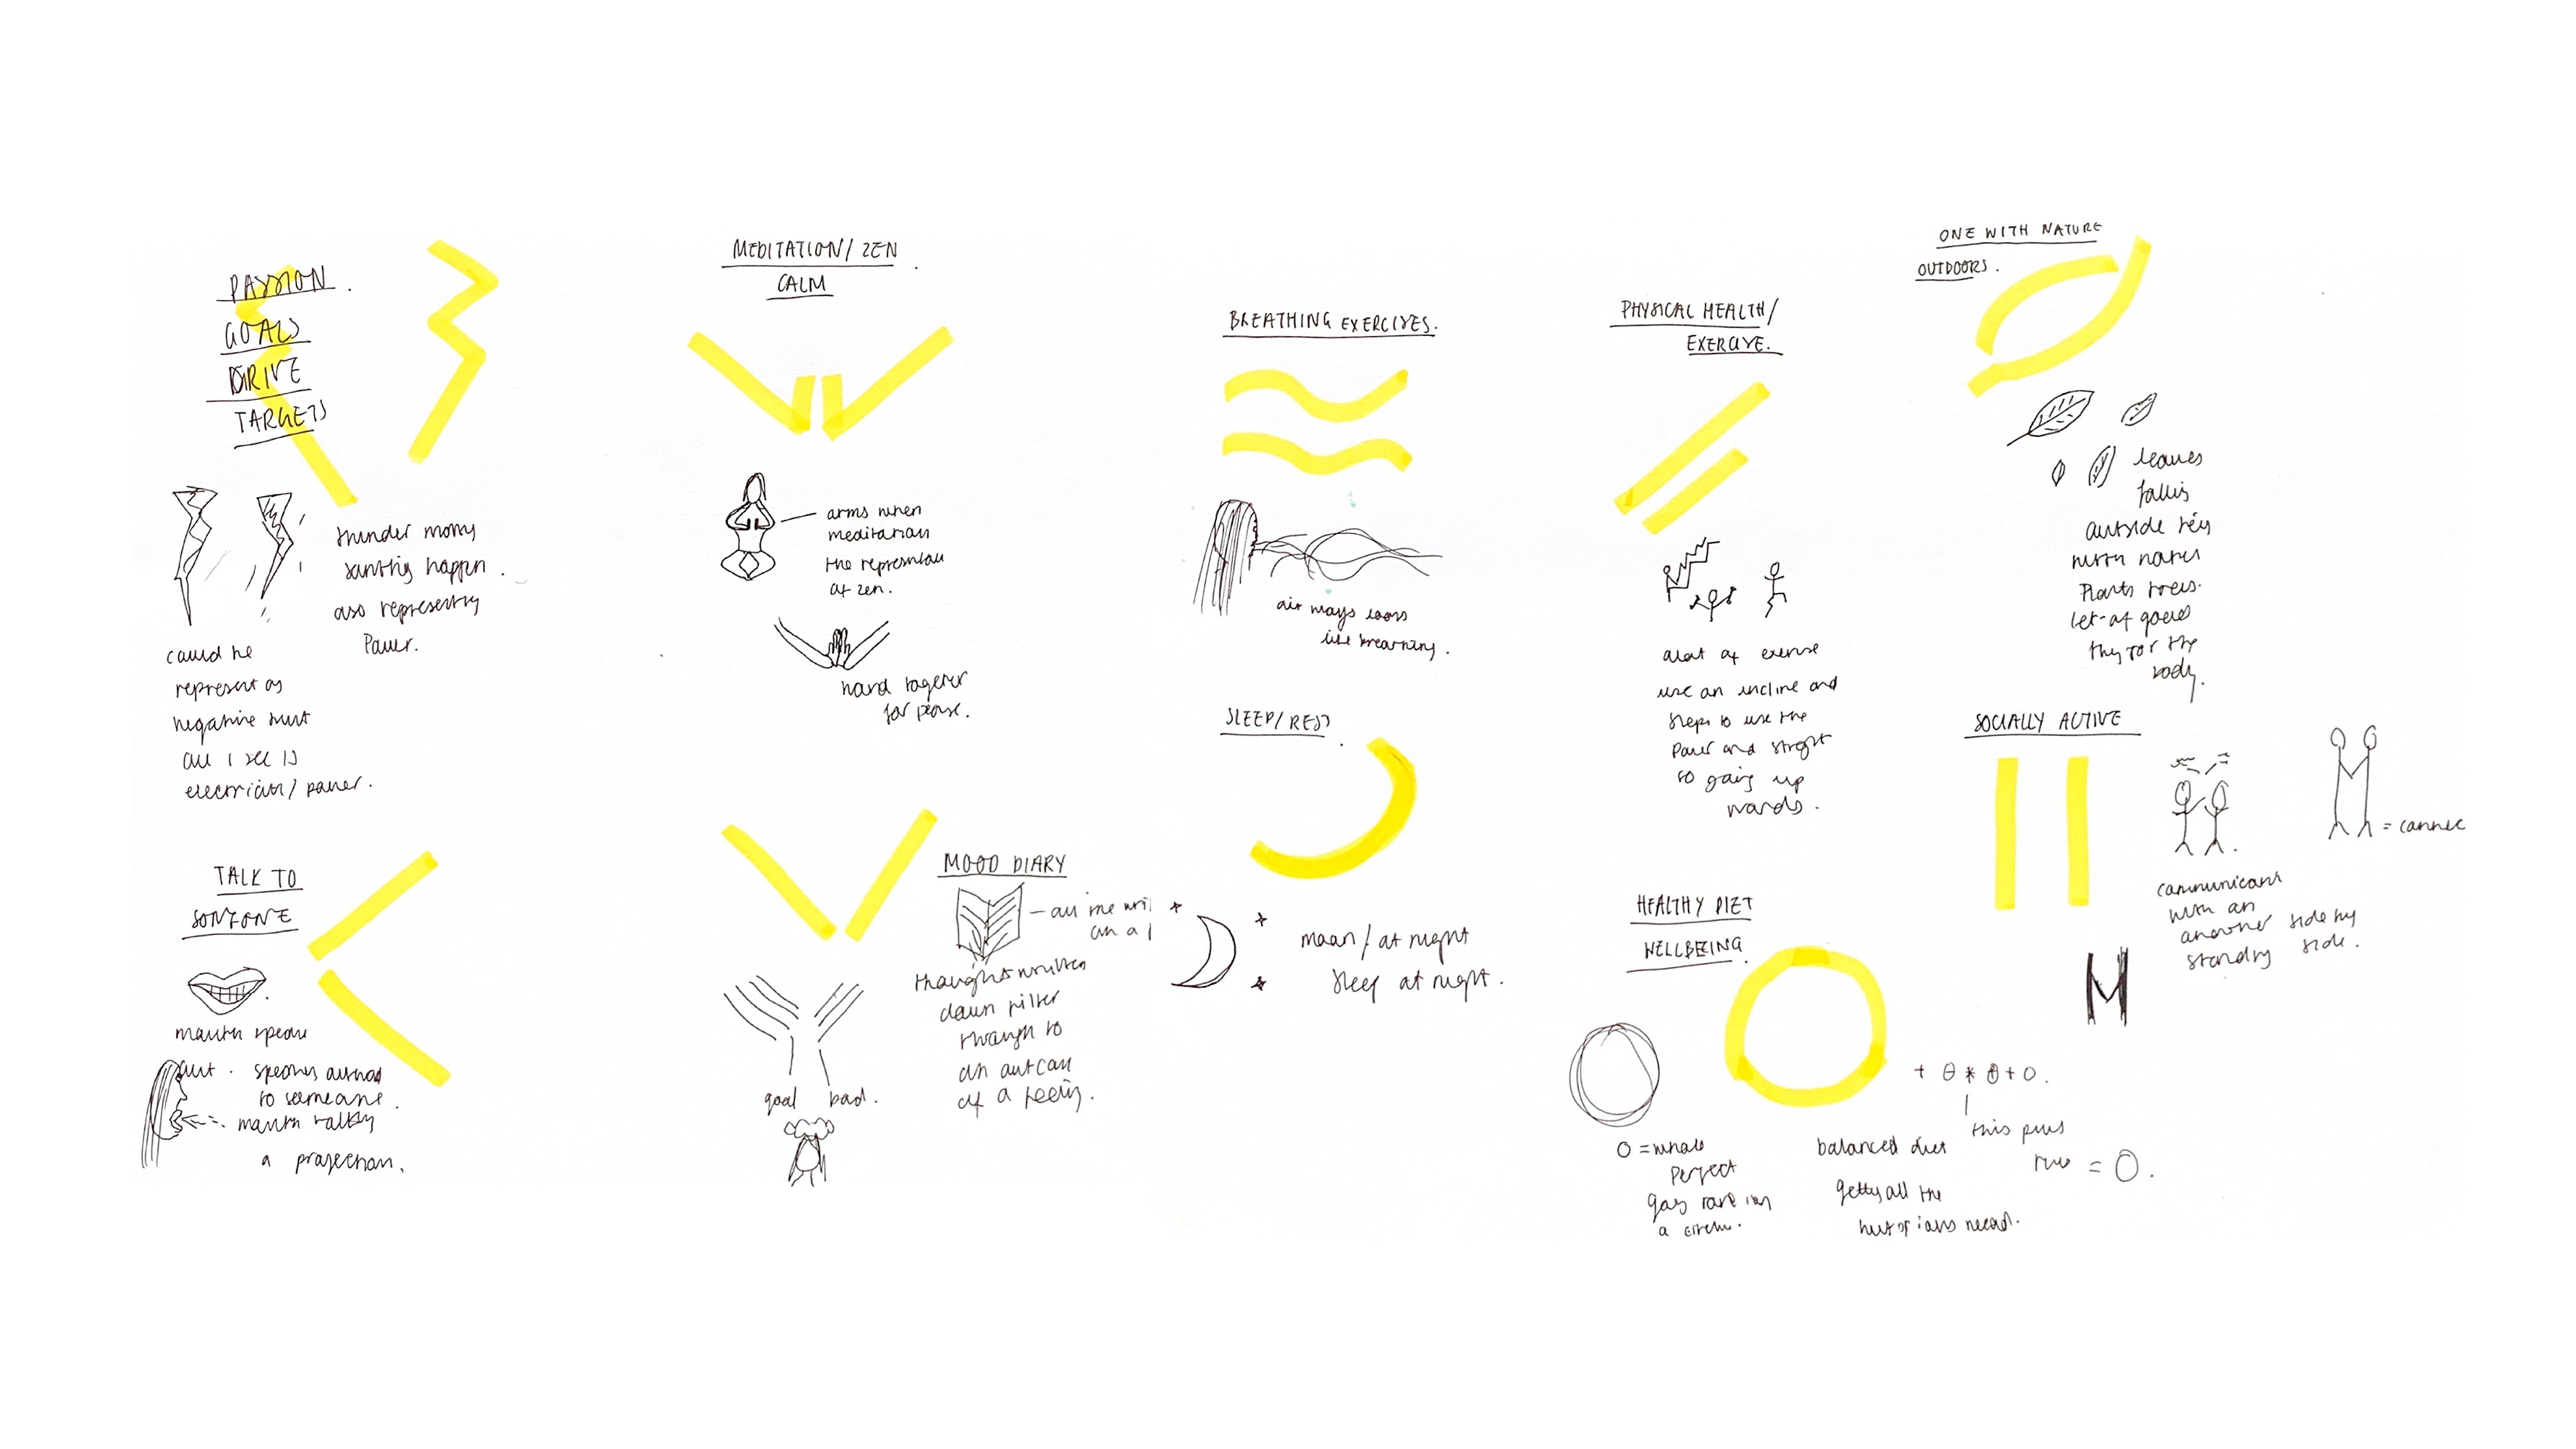 PASSION.
GOALS
DRIVE
TARGETS
thunder
happen.
also representing
Power.
could be
represent as
negative but
all I see is
electricity / power.
TALK TO
SOMEONE
mouth
out.
to someone.
mouth talking
a projection.
MEDITATION / ZEN
CALM
arms when
meditation
the
of zen.
hand together
for peace.
MOOD DIARY
thought written
down filter
through to
an
of a feeling.
good bad.
BREATHING EXERCISES.
air ways looks
like breathing.
SLEEP / REST
moon / at night
sleep at night.
PHYSICAL HEALTH /
EXERCISE.
alot of exercise
use an incline and
steps to use the
power and
so going up
wards.
HEALTHY DIET
WELLBEING
O = whole
perfect
a
balanced diet
getting all the
need.
this plus
= O.
ONE WITH NATURE
OUTDOORS.
leaves
falling
outside
with nature
Plants trees.
lot of good
for the
body.
SOCIALLY ACTIVE
with an
another side by
standing side.
= connec